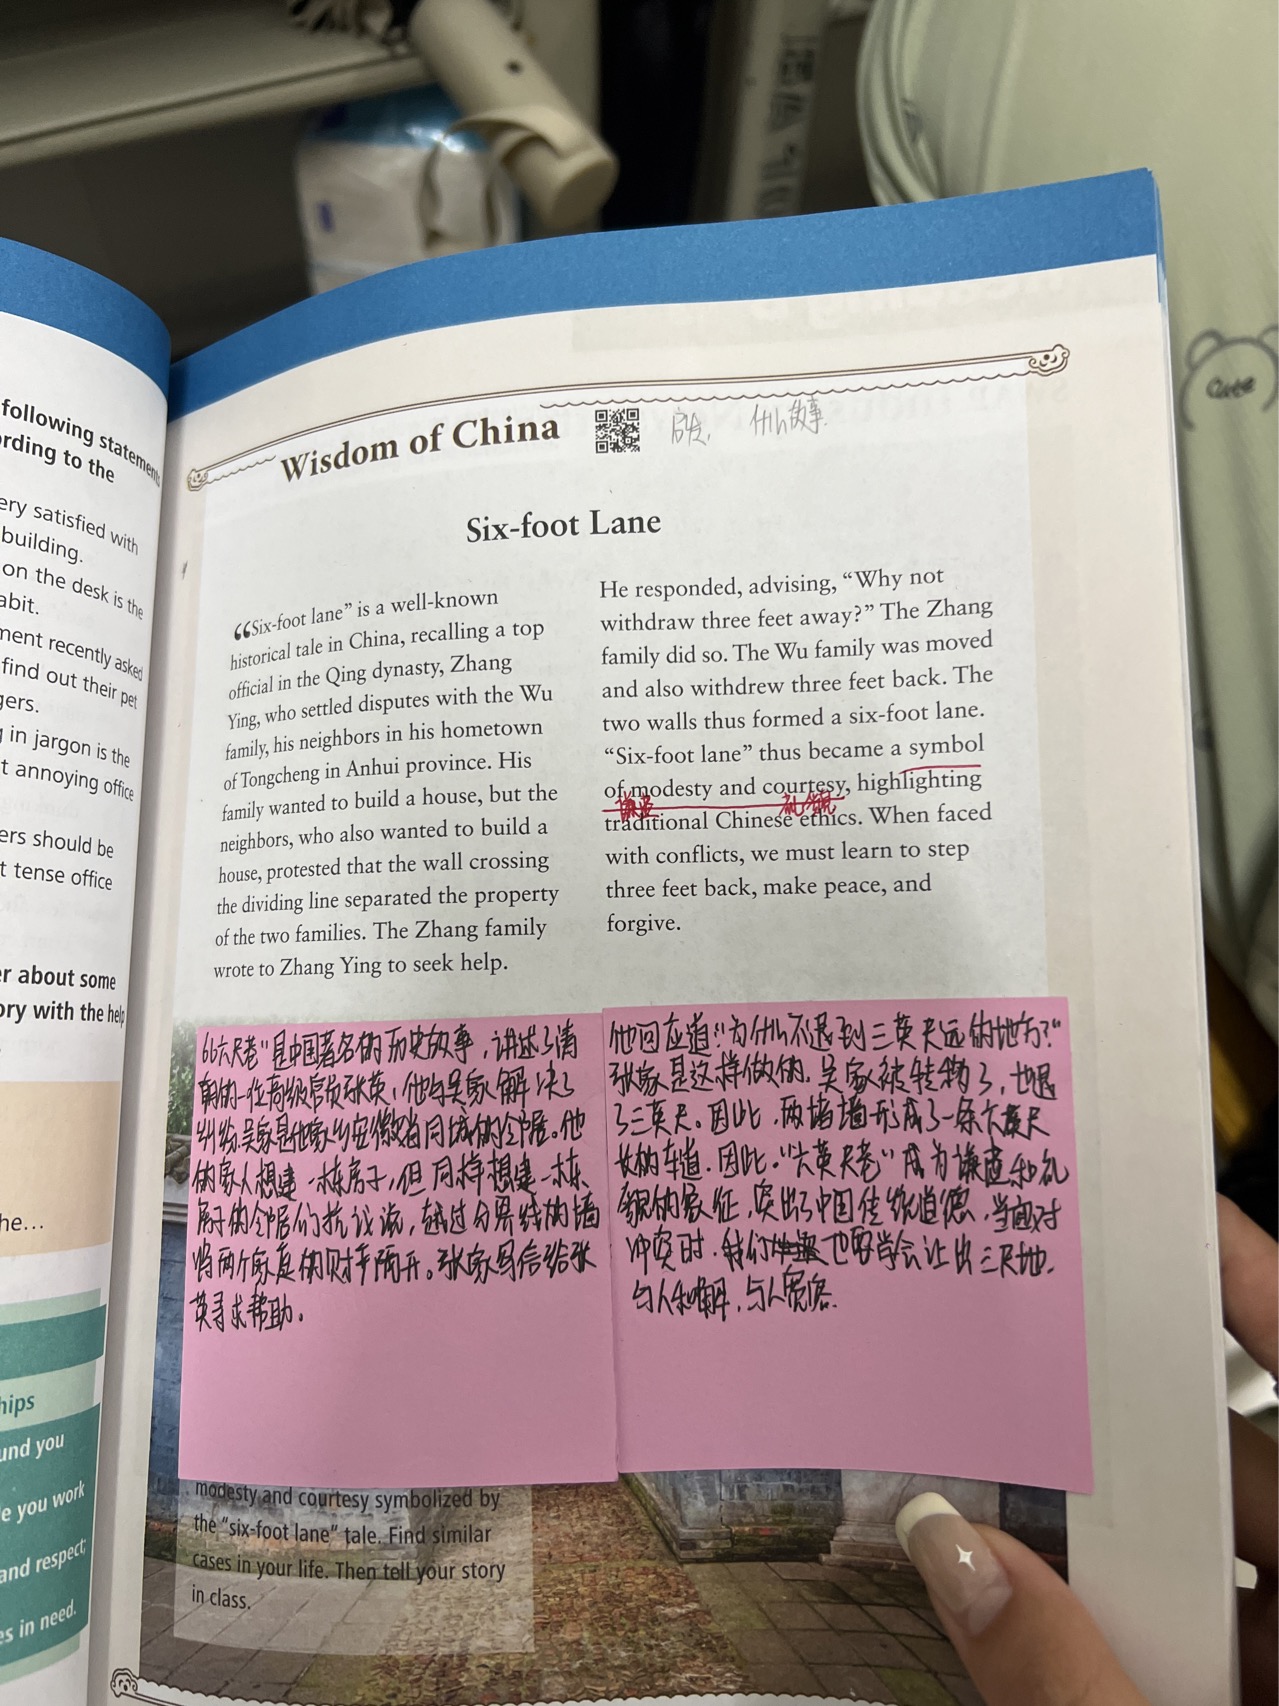 following statements
ording to the
ery satisfied with
building.
on the desk is the
abit.
ment recently asked
find out their pet
gers.
g in jargon is the
t annoying office
ers should be
t tense office
er about some
ory with the help
he…
hips
und you
le you work
and respect;
es in need.
Cute
Wisdom of China
什么故事.
Six-foot Lane
“Six-foot lane” is a well-known
historical tale in China, recalling a top
official in the Qing dynasty, Zhang
Ying, who settled disputes with the Wu
family, his neighbors in his hometown
of Tongcheng in Anhui province. His
family wanted to build a house, but the
neighbors, who also wanted to build a
house, protested that the wall crossing
the dividing line separated the property
of the two families. The Zhang family
wrote to Zhang Ying to seek help.
He responded, advising, “Why not
withdraw three feet away?” The Zhang
family did so. The Wu family was moved
and also withdrew three feet back. The
two walls thus formed a six-foot lane.
“Six-foot lane” thus became a symbol
of modesty and courtesy, highlighting
谦虚 礼貌
traditional Chinese ethics. When faced
with conflicts, we must learn to step
three feet back, make peace, and
forgive.
“六尺巷”是中国著名的历史故事，讲述了清
朝的一位高级官员张英，他与吴家解决了
纠纷.吴家是他家乡安徽省同城的邻居。他
的家人想建一栋房子，但同样想建一栋
房子的邻居们抗议说，越过分界线的墙
将两个家庭的财产隔开。张家写信给张
英寻求帮助。
他回应道“为什么不退到三英尺远的地方？”
张家是这样做的. 吴家被转物了，也退
了三英尺。因此，两堵墙形成了一条六英尺
长的车道. 因此.“六英尺巷”成为谦虚和礼
貌的象征，突出了中国传统道德，当面对
冲突时.我们也要学会让出三尺地.
与人和解，与人宽容.
modesty and courtesy symbolized by
the “six-foot lane” tale. Find similar
cases in your life. Then tell your story
in class.